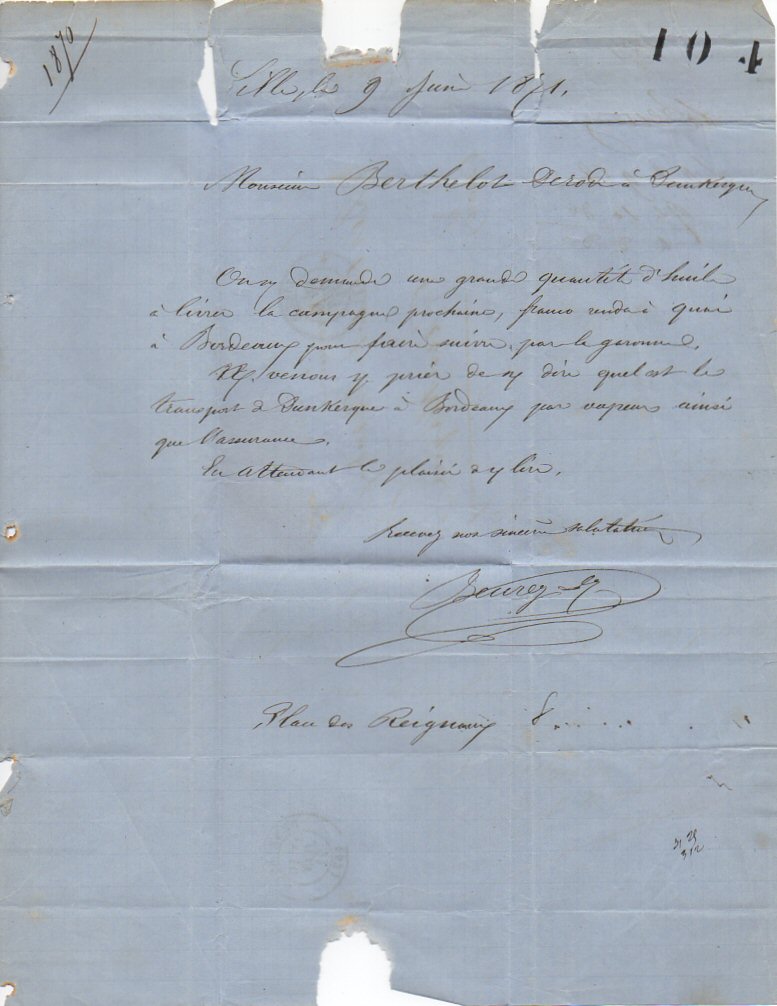 1870
104
Lille, le 9 Juin 1871.
Monsieur Berthelot Derode à Dunkerque
On ns demande une grande quantité d'huile
à livrer la campagne prochaine, franco rendu à quai
à Bordeaux pour faire suivre par la garonne.
venons vs prier de ns dire quel est le
transport de Dunkerque à Bordeaux par vapeur ainsi
que l'assurance.
En attendant le plaisir de vs lire,
Recevez nos sincères salutations
Place des Reignaux 8